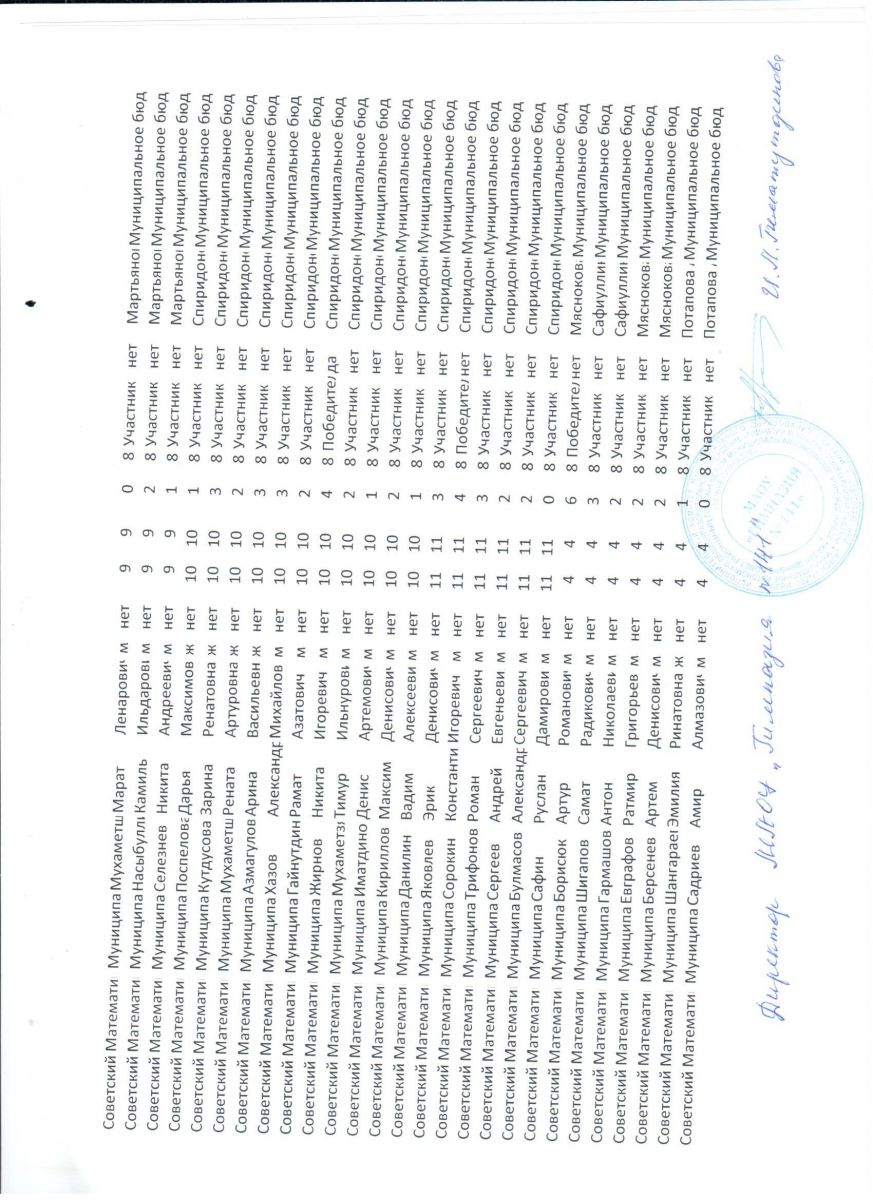 Советский Математи Муниципа Мухаметш Марат Ленарович м нет 9 9 0 8 Участник нет Мартьянов Муниципальное бюд
Советский Математи Муниципа Насыбулли Камиль Ильдарови м нет 9 9 2 8 Участник нет Мартьянов Муниципальное бюд
Советский Математи Муниципа Селезнев Никита Андрееви м нет 9 9 1 8 Участник нет Мартьянов Муниципальное бюд
Советский Математи Муниципа Поспелова Дарья Максимов ж нет 10 10 1 8 Участник нет Спиридоно Муниципальное бюд
Советский Математи Муниципа Кутдусова Зарина Ренатовна ж нет 10 10 3 8 Участник нет Спиридоно Муниципальное бюд
Советский Математи Муниципа Мухаметш Рената Артуровна ж нет 10 10 2 8 Участник нет Спиридоно Муниципальное бюд
Советский Математи Муниципа Азмагулов Арина Васильевн ж нет 10 10 3 8 Участник нет Спиридоно Муниципальное бюд
Советский Математи Муниципа Хазов Александр Михайлов м нет 10 10 3 8 Участник нет Спиридоно Муниципальное бюд
Советский Математи Муниципа Гайнутдин Рамат Азатович м нет 10 10 2 8 Участник нет Спиридоно Муниципальное бюд
Советский Математи Муниципа Жирнов Никита Игоревич м нет 10 10 4 8 Победител да Спиридоно Муниципальное бюд
Советский Математи Муниципа Мухаметзя Тимур Ильнурови м нет 10 10 2 8 Участник нет Спиридоно Муниципальное бюд
Советский Математи Муниципа Иматдино Денис Артемови м нет 10 10 1 8 Участник нет Спиридоно Муниципальное бюд
Советский Математи Муниципа Кириллов Максим Денисови м нет 10 10 2 8 Участник нет Спиридоно Муниципальное бюд
Советский Математи Муниципа Данилин Вадим Алексееви м нет 10 10 1 8 Участник нет Спиридоно Муниципальное бюд
Советский Математи Муниципа Яковлев Эрик Денисови м нет 11 11 3 8 Участник нет Спиридоно Муниципальное бюд
Советский Математи Муниципа Сорокин Константи Игоревич м нет 11 11 4 8 Победител нет Спиридоно Муниципальное бюд
Советский Математи Муниципа Трифонов Роман Сергеевич м нет 11 11 3 8 Участник нет Спиридоно Муниципальное бюд
Советский Математи Муниципа Сергеев Андрей Евгеньеви м нет 11 11 2 8 Участник нет Спиридоно Муниципальное бюд
Советский Математи Муниципа Булмасов Александр Сергеевич м нет 11 11 2 8 Участник нет Спиридоно Муниципальное бюд
Советский Математи Муниципа Сафин Руслан Дамирови м нет 11 11 0 8 Участник нет Спиридоно Муниципальное бюд
Советский Математи Муниципа Борисюк Артур Романови м нет 4 4 6 8 Победител нет Мясноков Муниципальное бюд
Советский Математи Муниципа Шигапов Самат Радикови м нет 4 4 3 8 Участник нет Сафиуллин Муниципальное бюд
Советский Математи Муниципа Гармашов Антон Николаеви м нет 4 4 2 8 Участник нет Сафиуллин Муниципальное бюд
Советский Математи Муниципа Евграфов Ратмир Григорьев м нет 4 4 2 8 Участник нет Мясноков Муниципальное бюд
Советский Математи Муниципа Берсенев Артем Денисови м нет 4 4 2 8 Участник нет Мясноков Муниципальное бюд
Советский Математи Муниципа Шангарае Эмилия Ринатовна ж нет 4 4 1 8 Участник нет Потапова Муниципальное бюд
Советский Математи Муниципа Садриев Амир Алмазович м нет 4 4 0 8 Участник нет Потапова Муниципальное бюд
Директор МАОУ „Гимназия №141" И.М.Гиматутдинова